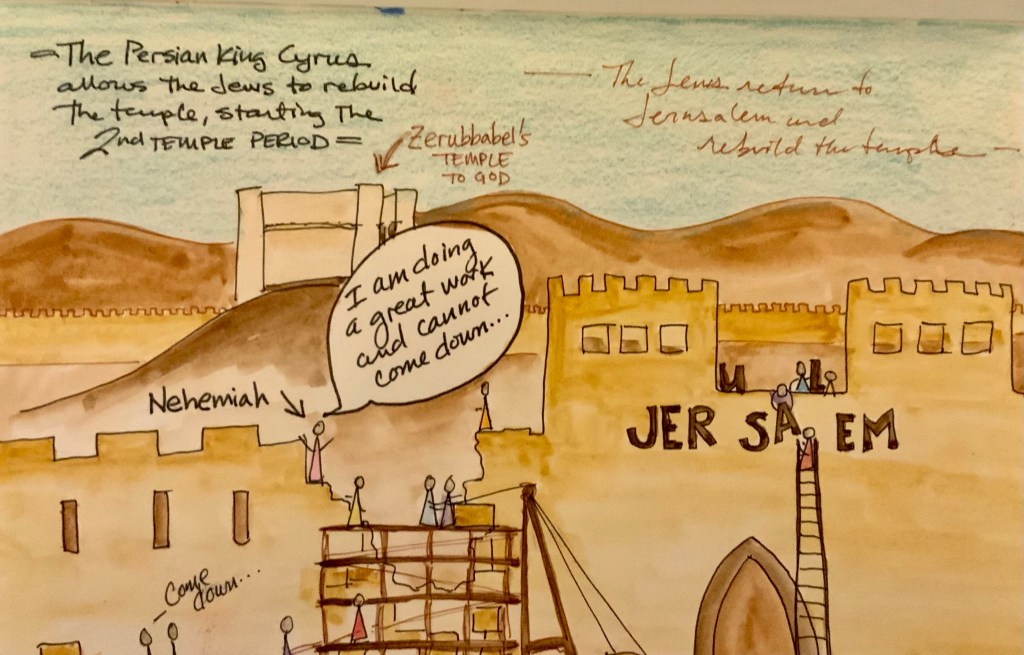 — The Persian King Cyrus
allows the Jews to rebuild
the temple, starting the
2nd TEMPLE PERIOD =
— The Jews return to
Jerusalem and
rebuild the temple —
Zerubbabel's
TEMPLE
TO GOD
I am doing
a great work
and cannot
come down...
Nehemiah
U L
JER SA EM
— come
down...